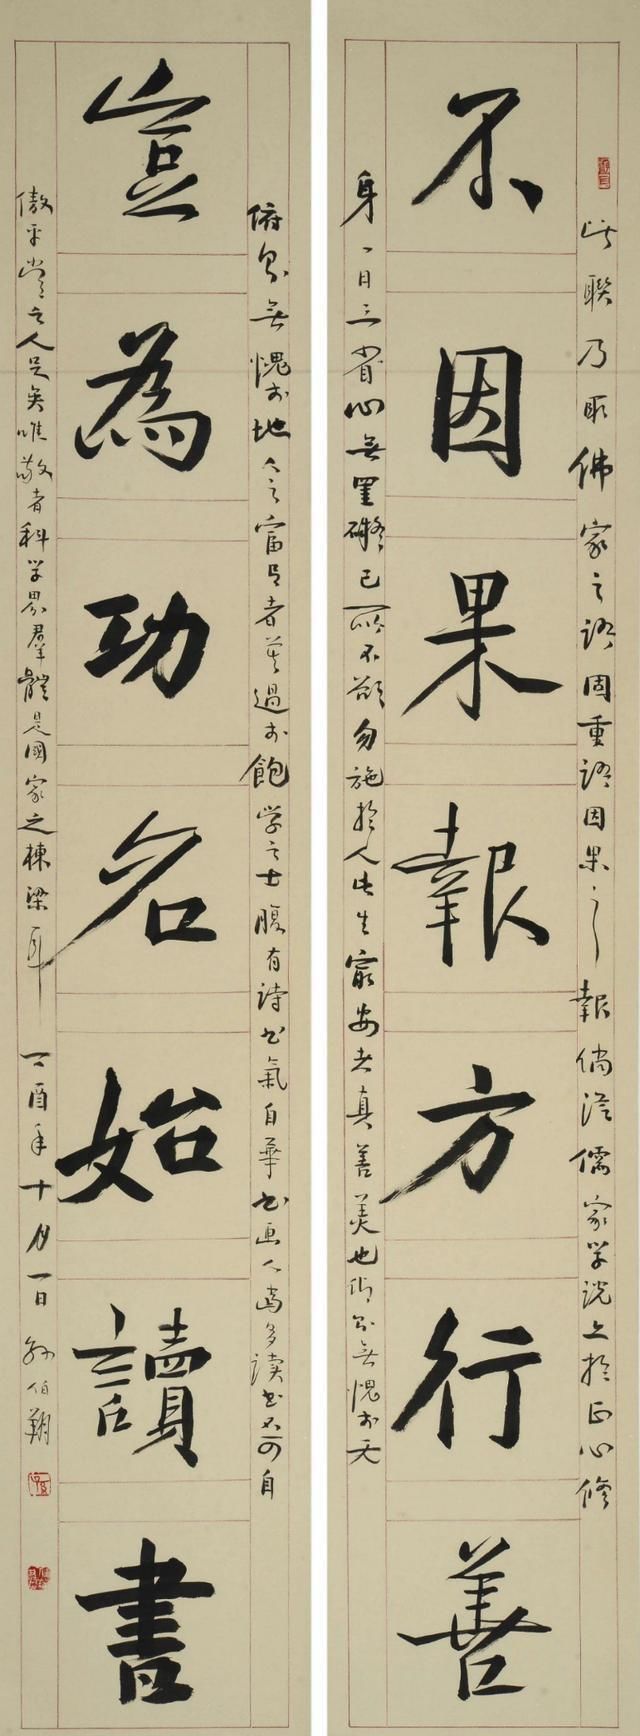 此聯乃取佛家之語固重語因果之報倘從儒家学説上於正心修
不因果報方行善
身一日三省心無罣礙己所不欲勿施於人此生安真善美也仰則無愧於天
俯則無愧於地人之富者莫過於飽学之士腹有詩書氣自華書画人當多读書不可自
豈為功名始讀書
傲平常之人足矣唯敬者科学界羣體是國家之棟梁耳丁酉年十月一日孫伯翔